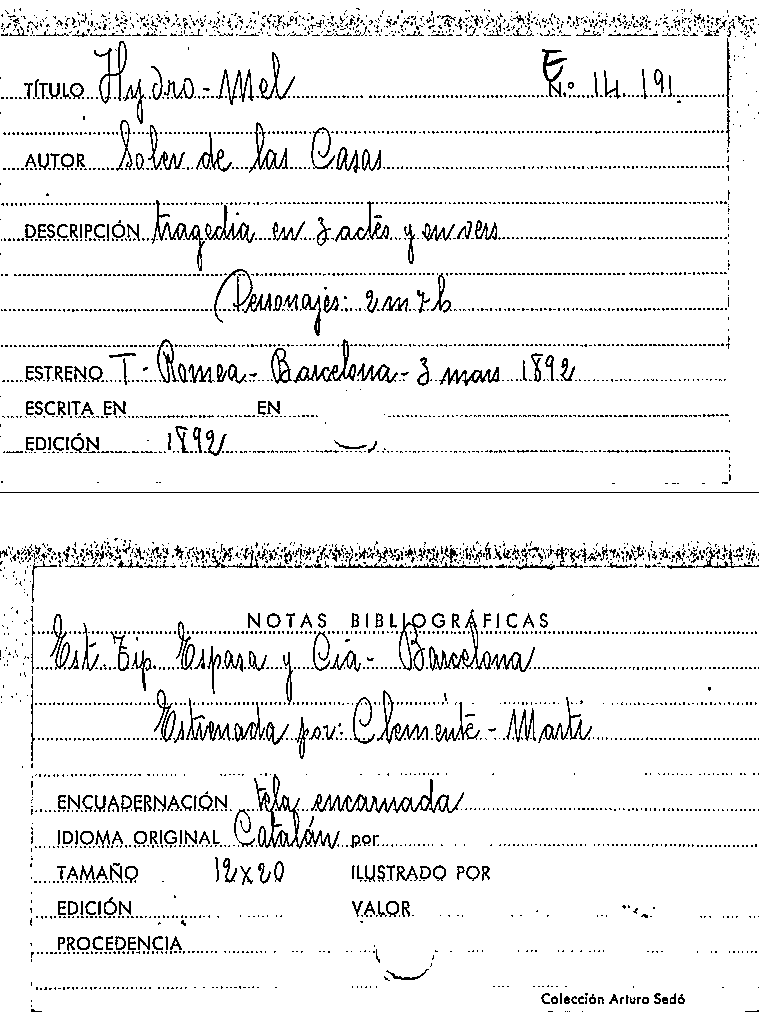 TÍTULO Hydro-Mel E N.º 14.191
AUTOR Soler de las Casas
DESCRIPCIÓN tragedia en 3 actes y en vers
Personajes: 2 m 7 h
ESTRENO T. Romea - Barcelona - 3 mars 1892
ESCRITA EN EN
EDICIÓN 1892
NOTAS BIBLIOGRÁFICAS
Est. Tip. Espasa y Cia - Barcelona
Estrenada por: Clemente - Marti
ENCUADERNACIÓN tela encarnada
IDIOMA ORIGINAL Catalán por
TAMAÑO 12x20 ILUSTRADO POR
EDICIÓN VALOR
PROCEDENCIA
Colección Arturo Sedó